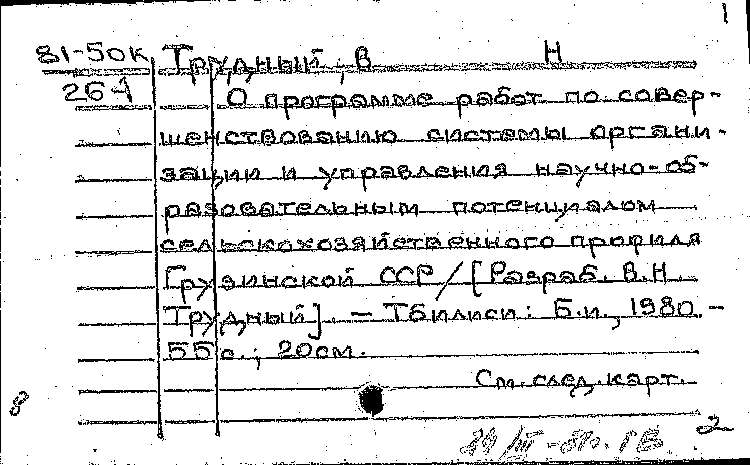 1
81-50к Трудный, В Н
26-1 О программе работ по совер-
шенствованию системы органи-
зации и управления научно-об-
разовательным потенциалом
сельскохозяйственного профиля
Грузинской ССР / [Разраб. В.Н.
Трудный]. — Тбилиси: Б.и., 1980. -
55 с.; 20см.
См. след. карт.
8
2